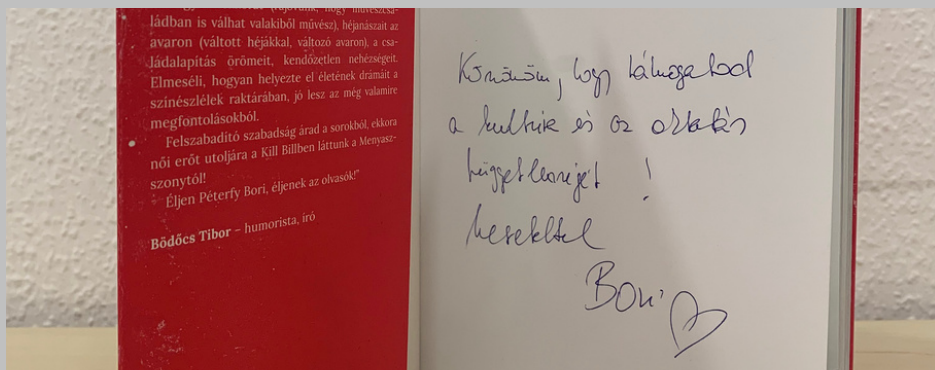 (rajövünk, hogy művészcsa-
ládban is válhat valakiből művész), héjanászait az
avaron (váltott héjákkal, változó avaron), a csa-
ládalapítás örömeit, kendőzetlen nehézségeit.
Elmeséli, hogyan helyezte el életének drámáit a
színészlélek raktárában, jó lesz az még valamire
megfontolásokból.
Felszabadító szabadság árad a sorokból, ekkora
női erőt utoljára a Kill Billben láttunk a Menyasz-
szonytól!
Éljen Péterfy Bori, éljenek az olvasók!"
Bödőcs Tibor – humorista, író
Köszönöm, hogy támogatod
a kultúra és az oktatás
függetlenségét !
Szeretettel
Bori